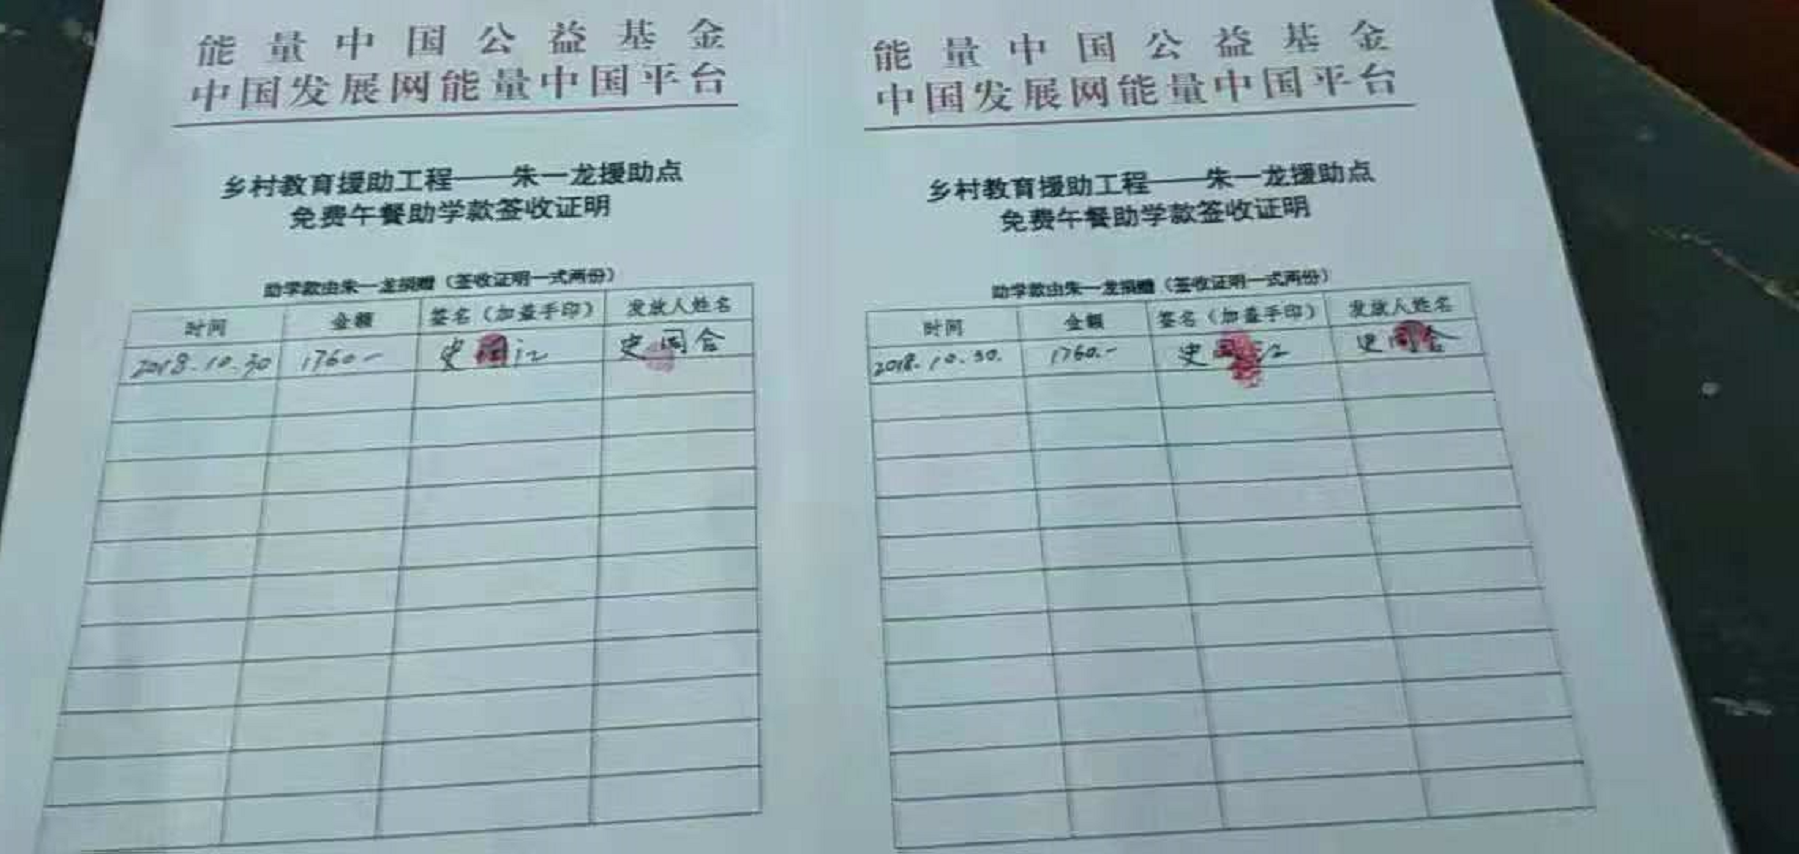 能量中国公益基金
中国发展网能量中国平台
乡村教育援助工程——朱一龙援助点
免费午餐助学款签收证明
助学款由朱一龙捐赠（签收证明一式两份）
时间 金额 签名（加盖手印） 发放人姓名
2018.10.30 1760- 史 江 史国合
能量中国公益基金
中国发展网能量中国平台
乡村教育援助工程——朱一龙援助点
免费午餐助学款签收证明
助学款由朱一龙捐赠（签收证明一式两份）
时间 金额 签名（加盖手印） 发放人姓名
2018.10.30. 1760.- 史 江 史国合